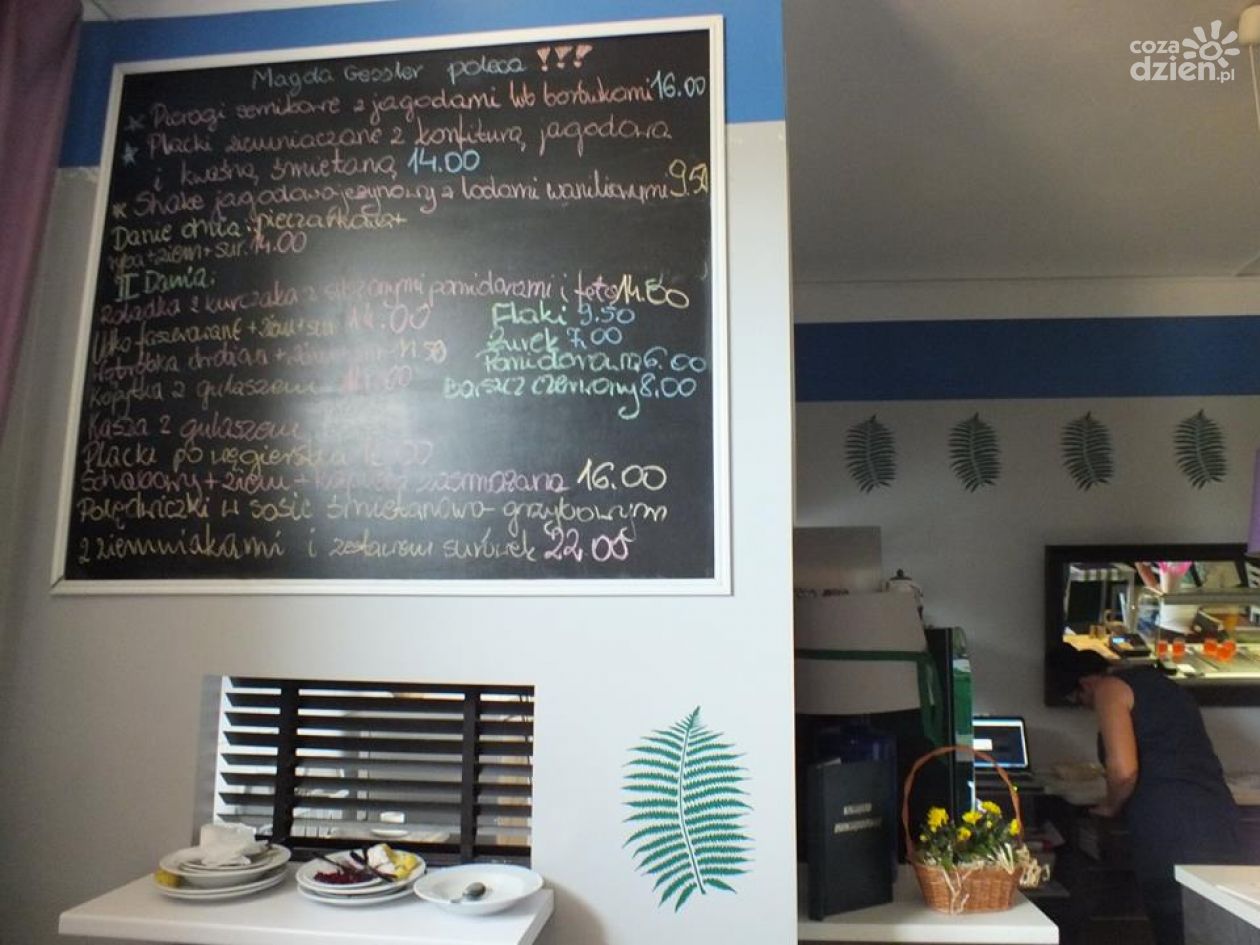 coza
dzien.pl
Magda Gessler poleca !!!
* Pierogi sernikowe z jagodami lub borówkami 16.00
* Placki ziemniaczane z konfiturą jagodową
i kwaśną śmietaną 14.00
* Shake jagodowo jeżynowy z lodami waniliowymi 9.50
Danie dnia: pieczarkowa+
ryba+ziem+sur. 14.00
II Dania:
Roladka z kurczaka z suszonymi pomidorami i fetą 14.50
Flaki 9.50
Udko faszerowane +ziem+sur 14.00
Żurek 7,00
Wątróbka drobiowa 11.50
Pomidorowa 6.00
Kopytka z gulaszem 11.00
Barszcz czerwony 8.00
Kasza z gulaszem
Placki po węgiersku
Schabowy + ziem + kapusta zasmażana 16.00
Polędwiczki w sosie śmietanowo-grzybowym
z ziemniakami i zestawem surówek 22.00